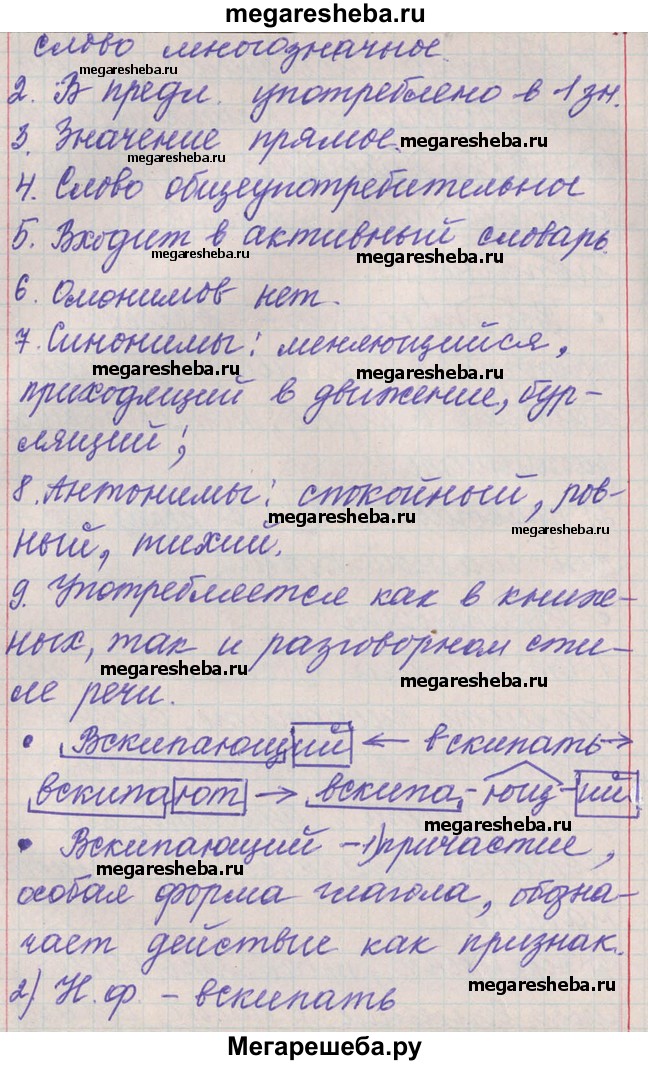 megaresheba.ru
слово многозначное.
megaresheba.ru
2. В предл. употреблено в 1 зн.
megaresheba.ru
3. Значение прямое.
megaresheba.ru
megaresheba.ru
4. Слово общеупотребительное
5. Входит в активный словарь
megaresheba.ru
megaresheba.ru
6. Омонимов нет.
7. Синонимы: меняющийся,
megaresheba.ru
megaresheba.ru
приходящий в движение, бур-
лящий;
8. Антонимы: спокойный, ров-
megaresheba.ru
megaresheba.ru
ный, тихий.
9. Употребляется как в книж-
ных, так и разговорном сти-
megaresheba.ru
megaresheba.ru
ле речи.
• Вскипающий ← вскипать →
вскипают → вскипа-ющ-ий
megaresheba.ru
• Вскипающий - 1) причастие,
особая форма глагола, обозна-
чает действие как признак.
megaresheba.ru
2) Н. ф. - вскипать
Мегарешеба.ру